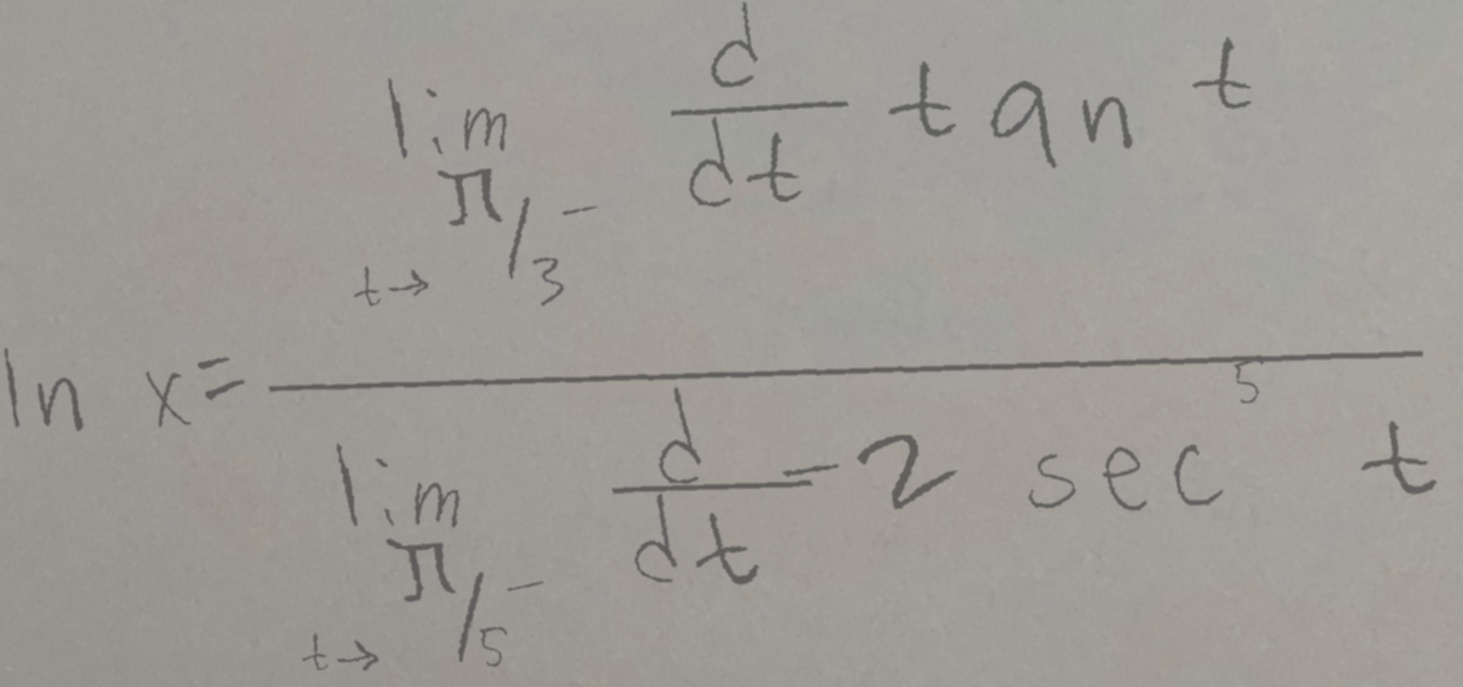 lim t→π/3⁻ d/dt tan t
ln x = ————————————
lim t→π/5⁻ d/dt -2 sec⁵ t